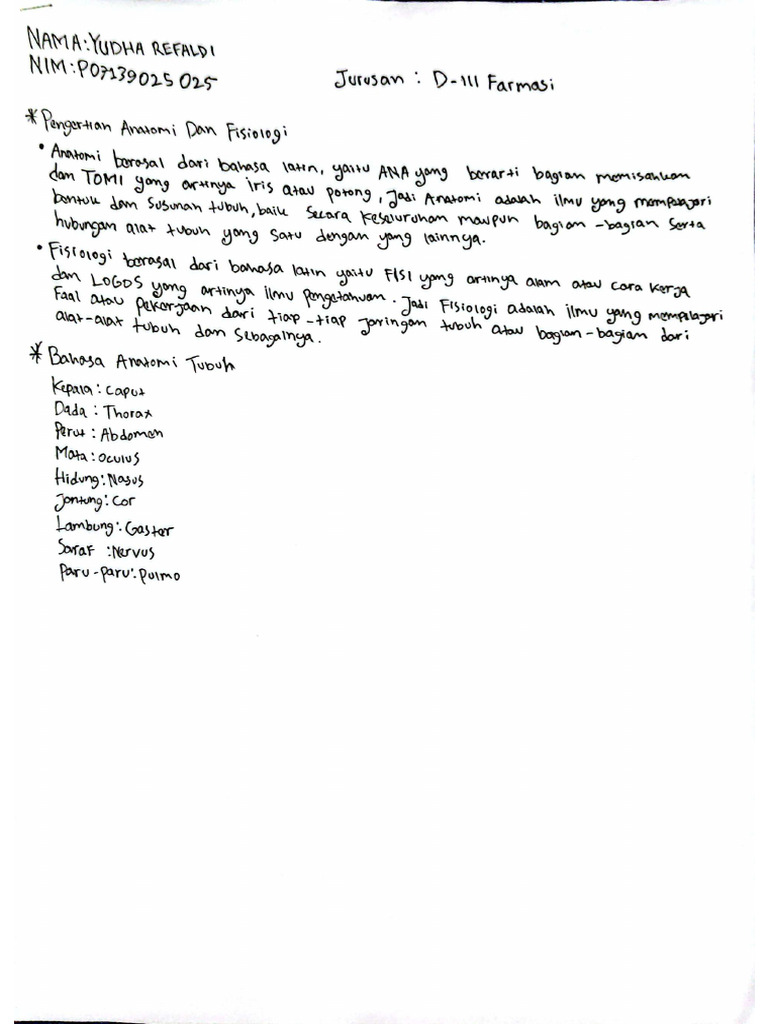 NAMA: YUDHA REFALDI
NIM: P07139025 025
Jurusan : D-III Farmasi
* Pengertian Anatomi Dan Fisiologi
• Anatomi berasal dari bahasa latin, yaitu ANA yang berarti bagian memisahkan
dan TOMI yang artinya iris atau potong, Jadi Anatomi adalah ilmu yang mempelajari
bentuk dan susunan tubuh, baik secara keseluruhan maupun bagian-bagian serta
hubungan alat tubuh yang satu dengan yang lainnya.
• Fisiologi berasal dari bahasa latin yaitu FISI yang artinya alam atau cara kerja
dan LOGOS yang artinya ilmu pengetahuan. Jadi Fisiologi adalah ilmu yang mempelajari
Faal atau pekerjaan dari tiap-tiap jaringan tubuh atau bagian-bagian dari
alat-alat tubuh dan sebagainya.
* Bahasa Anatomi Tubuh
Kepala : Caput
Dada : Thorax
Perut : Abdomen
Mata : Oculus
Hidung : Nasus
Jantung : Cor
Lambung : Gaster
Saraf : Nervus
Paru-paru : Pulmo